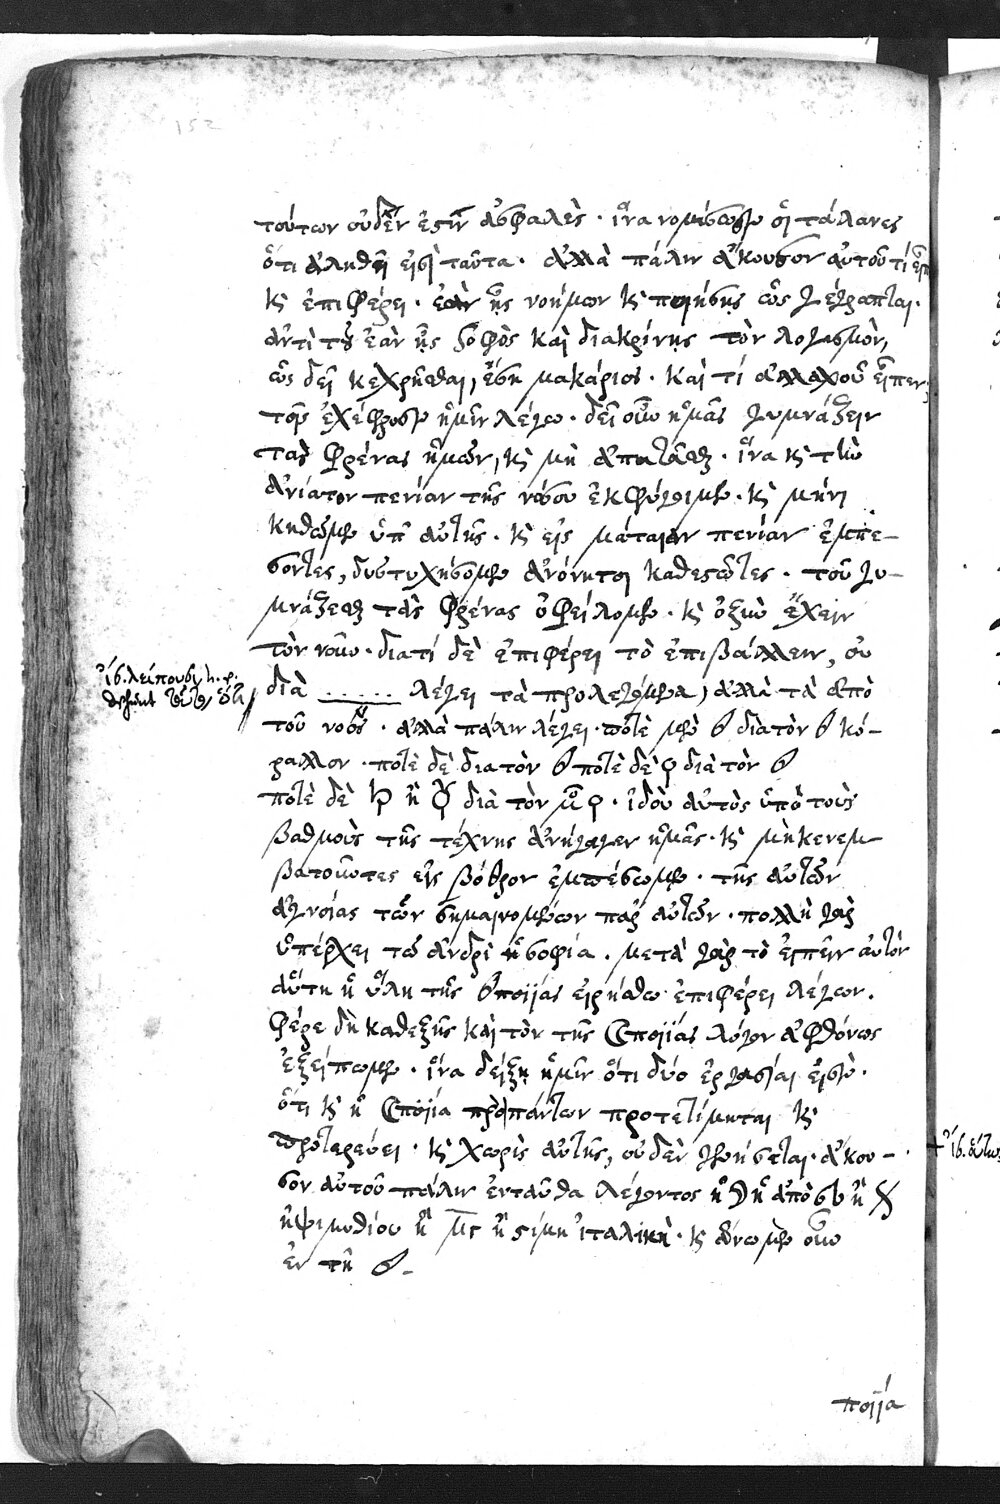 152
τούτων οὐδέν ἐστιν ἀσφαλὲς · ἵνα νομίσωσιν οἱ τάλανες
ὅτι ἀληθῆ εἰσὶ ταῦτα · ἀλλὰ πάλιν ἄκουσον αὐτοῦ τί
κ̀ ἐπιφέρει · ἐὰν ᾖς νοήμων κ̀ ποιήσῃς ὡς γέγραπται ·
ἀντὶ τοῦ ἐὰν ᾖς σοφὸς καὶ διακρίνῃς τὸν λογισμὸν,
ὡς δεῖ κεχρῆσθαι, ἔσῃ μακάριος · καὶ τί ἀλλαχοῦ εἶπεν
τοῖς ἐχέφροσιν ἡμῖν λέγω · δεῖ οὖν ἡμᾶς γυμνάζειν
τὰς φρένας ἡμῶν, κ̀ μὴ ἀπατᾶσθαι · ἵνα κ̀ τὴν
ἀνίατον πενίαν τῆς νόσου ἐκφύγοιμεν · κ̀ μὴ νι
κηθῶμεν ὑπ' αὐτῆς · κ̀ εἰς μάταιον πενίαν ἐμπε–
σόντες, δυστυχήσομεν ἀνόνητοι καθεστῶτες · τοῦ γυ–
μνάζεσθαι τὰς φρένας ὀφείλομεν · κ̀ ὀξὺν ἔχειν
τὸν νοῦν · διατί δὲ ἐπιφέρει τὸ ἐπιβάλλειν, οὐ
ἰσ. λείπουσι
διὰ ...... λέγει τὰ προλεγόμενα, ἀλλὰ τὰ ἀπὸ
τοῦ νοὸς · ἀλλὰ πάλιν λέγει · ποτὲ μὲν διὰ τὸν κό–
ραλλον · ποτὲ δὲ διὰ τὸν ποτὲ δὲ διὰ τὸν
ποτὲ δὲ ἢ διὰ τὸν · ἰδοὺ αὐτὸς ὑπὸ τοὺς
βαθμοὺς τῆς τέχνης ἀνήγαγεν ἡμᾶς · κ̀ μὴ κενεμ
βατοῦντες εἰς βόθρον ἐμπέσωμεν · τῆς αὐτῶν
ἀγνοίας τῶν σημαινομένων παρ' αὐτῶν · πολλὴ γὰρ
ὑπάρχει τῷ ἀνδρὶ ἡ σοφία · μετὰ γὰρ τὸ εἰπεῖν αὐτὸν
αὕτη ἡ ὕλη τῆς ποιΐας εἰρήσθω ἐπιφέρει λέγων ·
φέρε δὴ καθεξῆς καὶ τὸν τῆς ποιΐας λόγον ἀφθόνως
ἐξείπωμεν · ἵνα δείξῃ ἡμῖν ὅτι δύο ἐργασίαι εἰσὶν ·
ὅτι κ̀ ἡ ποιΐα πρὸ πάντων προτετίμηται κ̀
προτερεύει · κ̀ χωρὶς αὐτῆς, οὐδὲν γενήσεται · ἄκου –
σον αὐτοῦ πάλιν ἐνταῦθα λέγοντος ἢ ἡ ἀπὸ ἢ
ἢ ψιμυθίου ἢ ἢ στίμη ἰταλικὴ · κ̀ οὖν
ἐν τῇ
ποιΐα